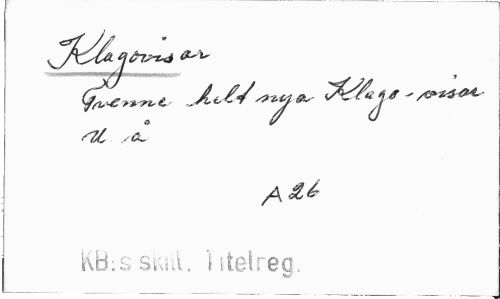 Klagovisor
Tvenne helt nya Klago-visor
U å
A 26
KB:s skill. Titelreg.